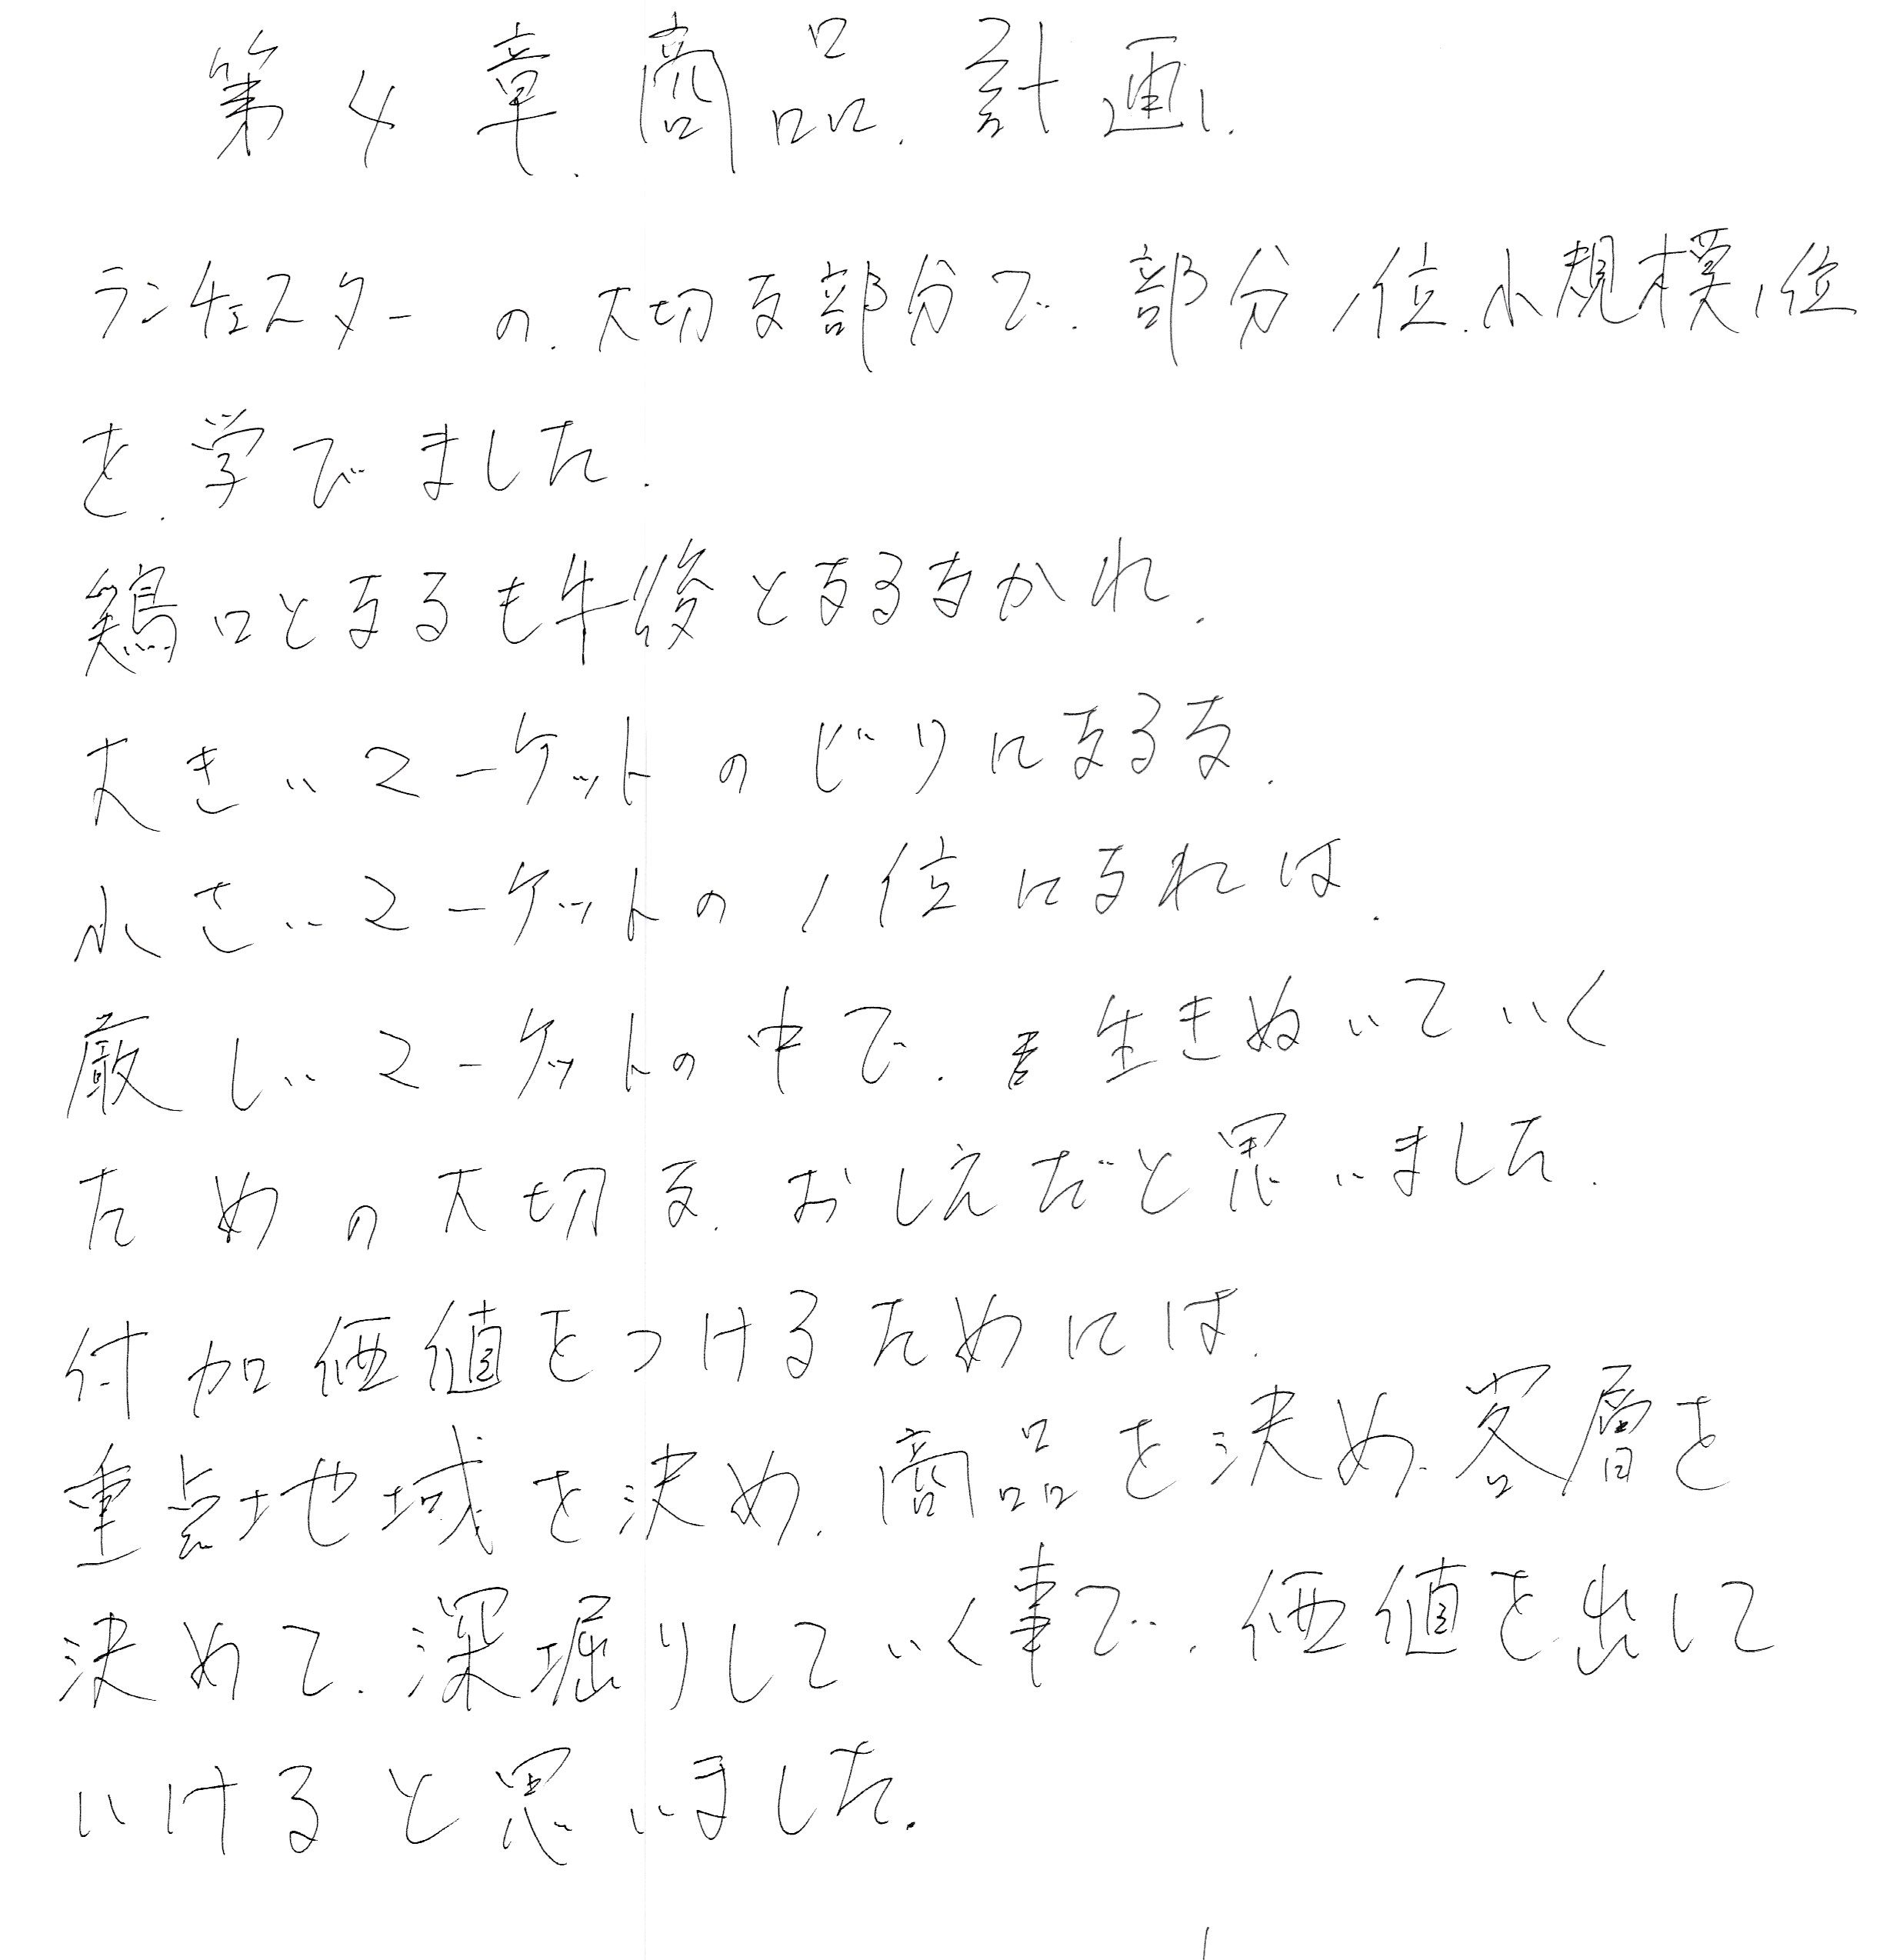 第4章.商品.計画.
ランチェスターの.大切な部分で.部分1位.小規模1位
を.学でました.
鶏口となるも牛後となるなかれ.
大きいマーケットのビリになるな.
小さいマーケットの1位になれは.
厳しいマーケットの中で.生きぬいていく
ための大切な.おしえだと思いました.
付加価値をつけるためには.
重点地域を決め.商品を決め.客層を
決めて.深堀りしていく事で.価値を出して
いけると思いました.